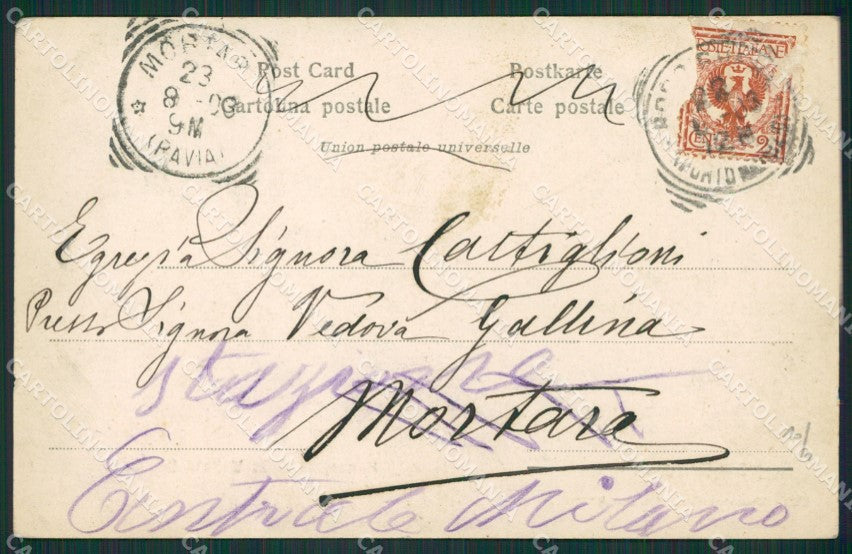 MORTARA
23
8 - 03
9M
(PAVIA)
Post Card Postkarte
Cartolina postale Carte postale
Union postale universelle
POSTE ITALIANE
2
Egregia Signora Castiglioni
Presso Signora Vedova Gallina
Stazione
Mortara
Centrale Milano
CARTOLINOMANIA